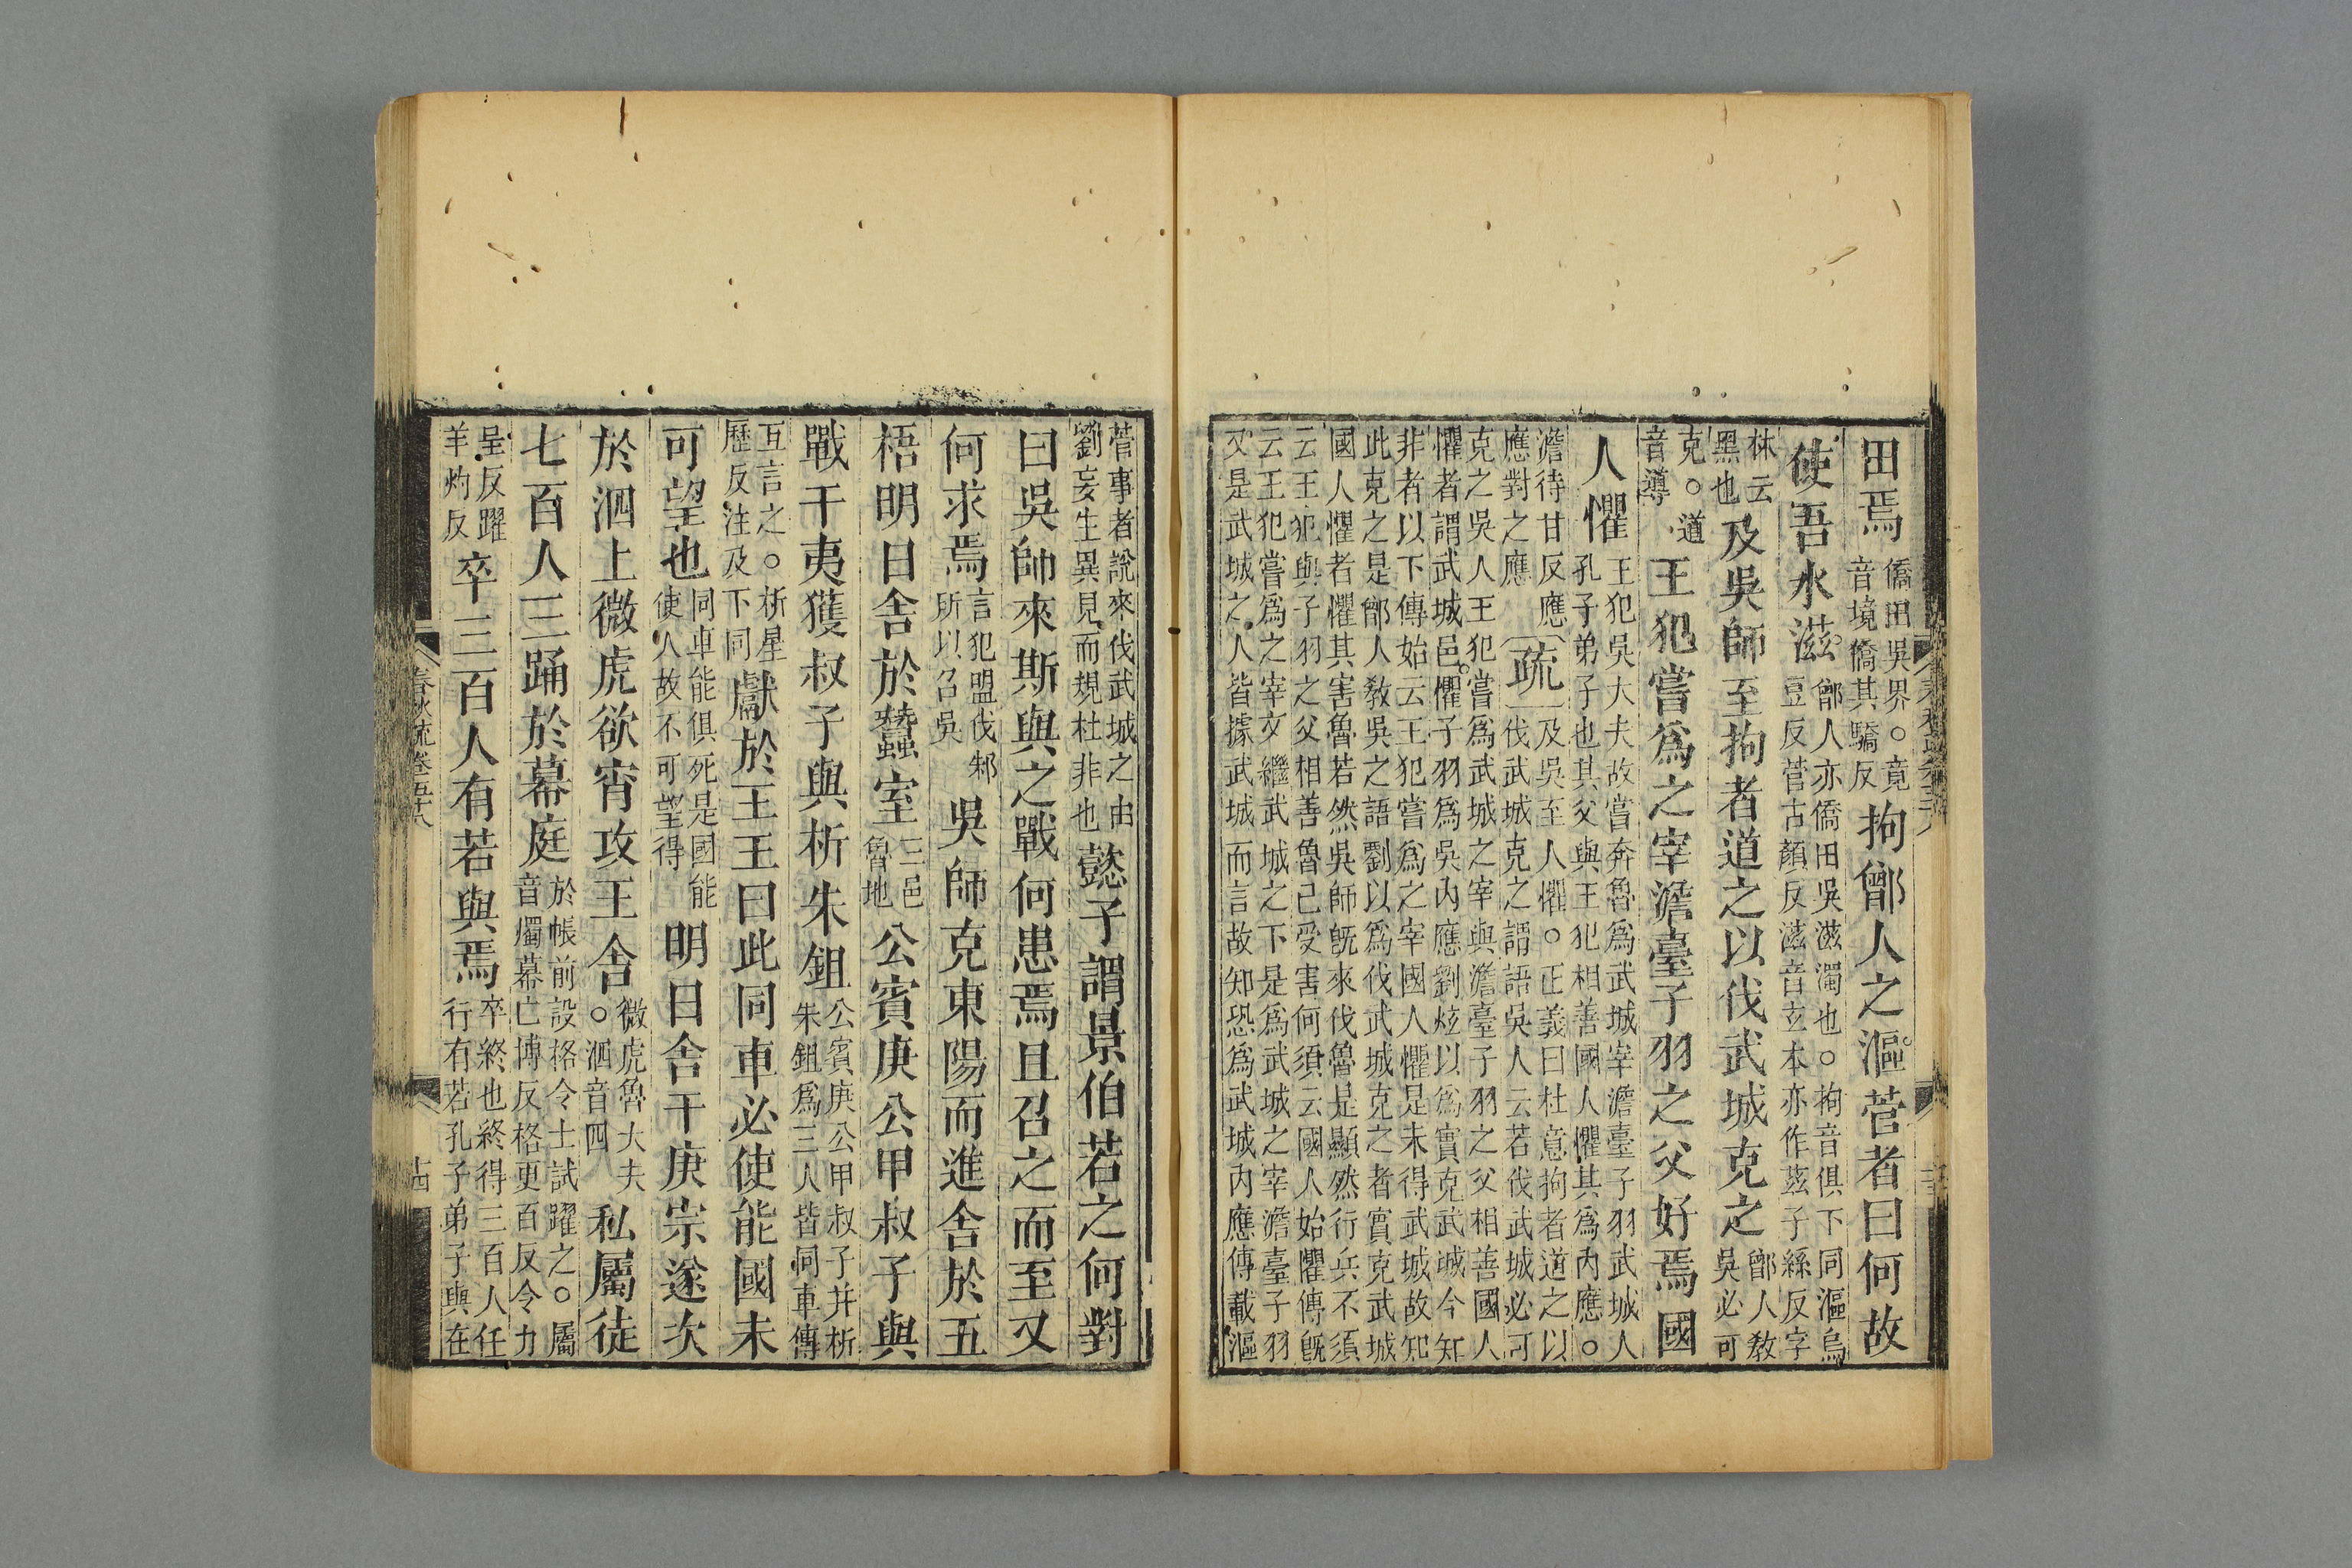 田焉僑田吳界。竟音境僑其驕反拘鄫人之漚菅者曰何故
使吾水滋鄫人亦僑田吳滋濁也。拘音俱下同漚烏豆反菅古顏反滋音玄本亦作茲子絲反字
林云黑也及吳師至拘者道之以伐武城克之鄫人敎吳必可
克。道音導王犯嘗爲之宰澹臺子羽之父好焉國
人懼王犯吳大夫故嘗奔魯爲武城宰澹臺子羽武城人孔子弟子也其父與王犯相善國人懼其爲內應。
澹待甘反應應對之應疏及吳至人懼。正義曰杜意拘者道之以伐武城克之謂語吳人云若伐武城必可
克之吳人王犯嘗爲武城之宰與澹臺子羽之父相善國人
懼者謂武城邑懼子羽爲吳內應劉炫以爲實克武城今知
非者以下傳始云王犯嘗爲之宰國人懼是未得武城故知
此克之是鄫人敎吳之語劉以爲伐武城克之者實克武城
國人懼者懼其害魯若然吳師旣來伐魯是顯然行兵不須
云王犯與子羽之父相善魯已受害何須云國人始懼傳旣
云王犯嘗爲之宰文繼武城之下是爲武城之宰澹臺子羽
又是武城之人皆據武城而言故知恐爲武城內應傳載漚
菅事者說來伐武城之由劉妄生異見而規杜非也懿子謂景伯若之何對
曰吳師來斯與之戰何患焉且召之而至又
何求焉言犯盟伐邾所以召吳吳師克東陽而進舍於五
梧明日舍於蠶室三邑魯地公賓庚公甲叔子與
戰于夷獲叔子與析朱鉏公賓庚公甲叔子幷析朱鉏爲三人皆同車傳
互言之。析星歷反注及下同獻於王王曰此同車必使能國未
可望也同車能俱死是國能使人故不可望得明日舍于庚宗遂次
於泗上微虎欲宵攻王舍微虎魯大夫。泗音四私屬徒
七百人三踊於幕庭於帳前設格令士試躍之。屬音燭幕亡博反格更百反令力
呈反躍羊灼反卒三百人有若與焉卒終也終得三百人任行有若孔子弟子與在
春秋疏卷五十八
十四